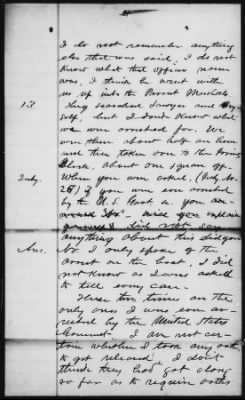 I do not remember anything
else that was said. I do not
know what the officers name
was. I think he went with
us up into the Provost Marshals
They searched Sawyer and my
self, but I dont know what
we were arrested for. We
were there about half an hour
and then taken over to the
Block, about one square off.
Int.
When you were asked, (Int. No.
26) if you were ever arrested
by the U.S. Govt. &c. you
did not say
anything about this did you
Ans.
No. I only spoke of the
arrest on the boat. I did
not know as I was asked
to tell every case.
These two times are the
only ones I was ever ar-
rested by the United States
Government. I am not cer-
tain whether I took any oath
to get released. I don't
think they had got along
so far as to require oaths